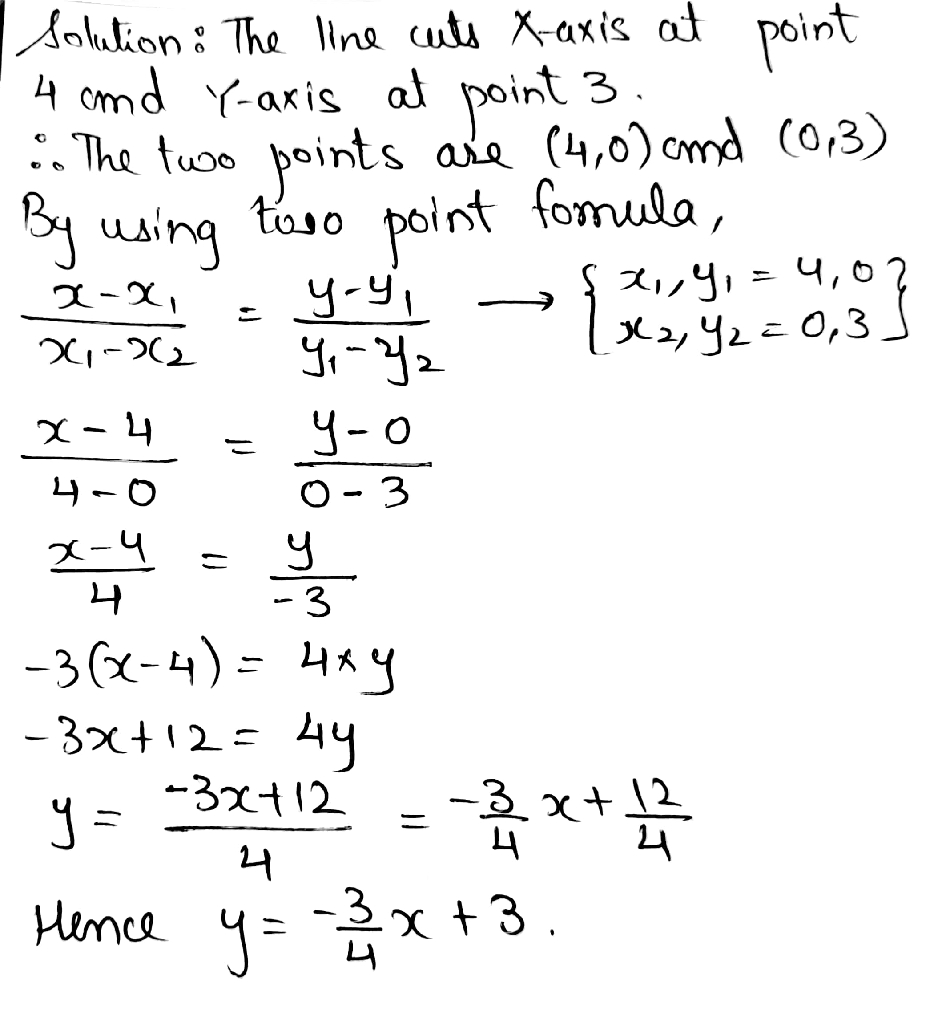 Solution : The line cuts X-axis at point
4 and Y-axis at point 3.
∴ The two points are (4,0) and (0,3)
By using two point fomula,
x-x₁/x₁-x₂ = y-y₁/y₁-y₂ → {x₁,y₁ = 4,0
x₂,y₂ = 0,3}
x-4/4-0 = y-0/0-3
x-4/4 = y/-3
-3(x-4) = 4×y
-3x+12 = 4y
y = -3x+12/4 = -3/4 x + 12/4
Hence y = -3/4 x + 3.